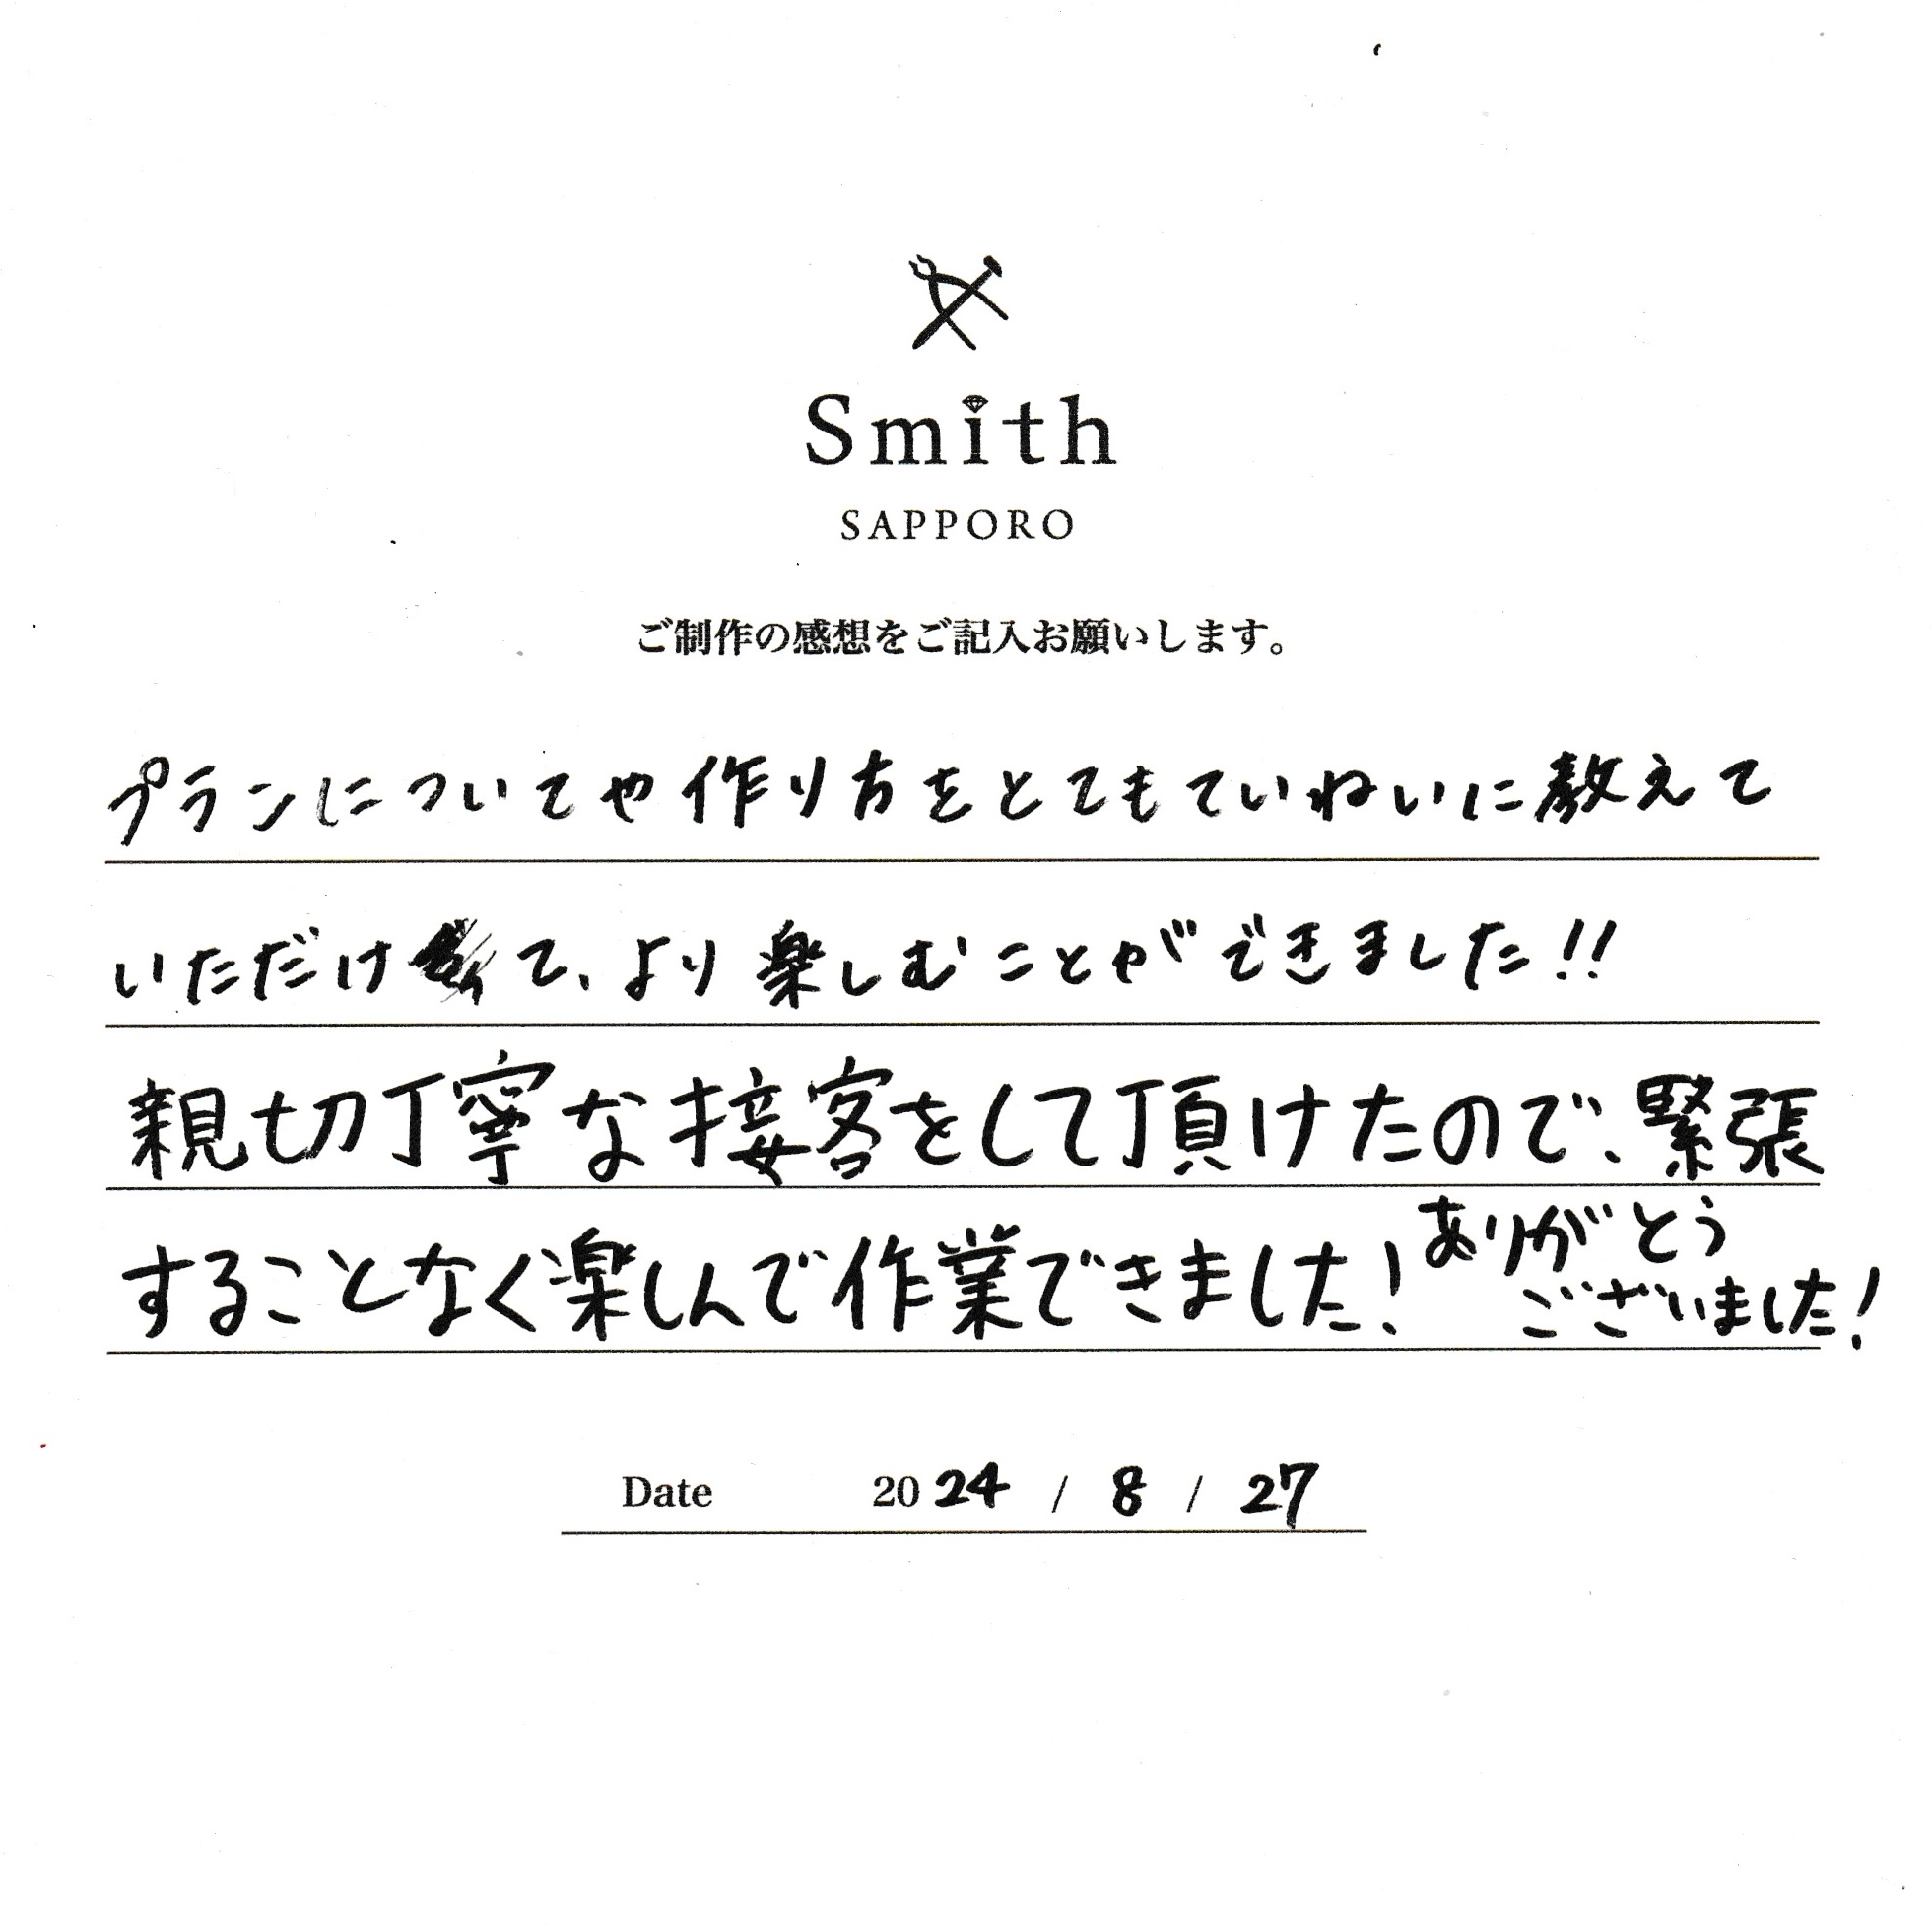 Smith
SAPPORO
ご制作の感想をご記入お願いします。
プランについてや作り方をとてもていねいに教えて
いただけて、より楽しむことができました!!
親切丁寧な接客をして頂けたので、緊張
することなく楽しんで作業できました!
ありがとう
ございました!
Date 2024 / 8 / 27